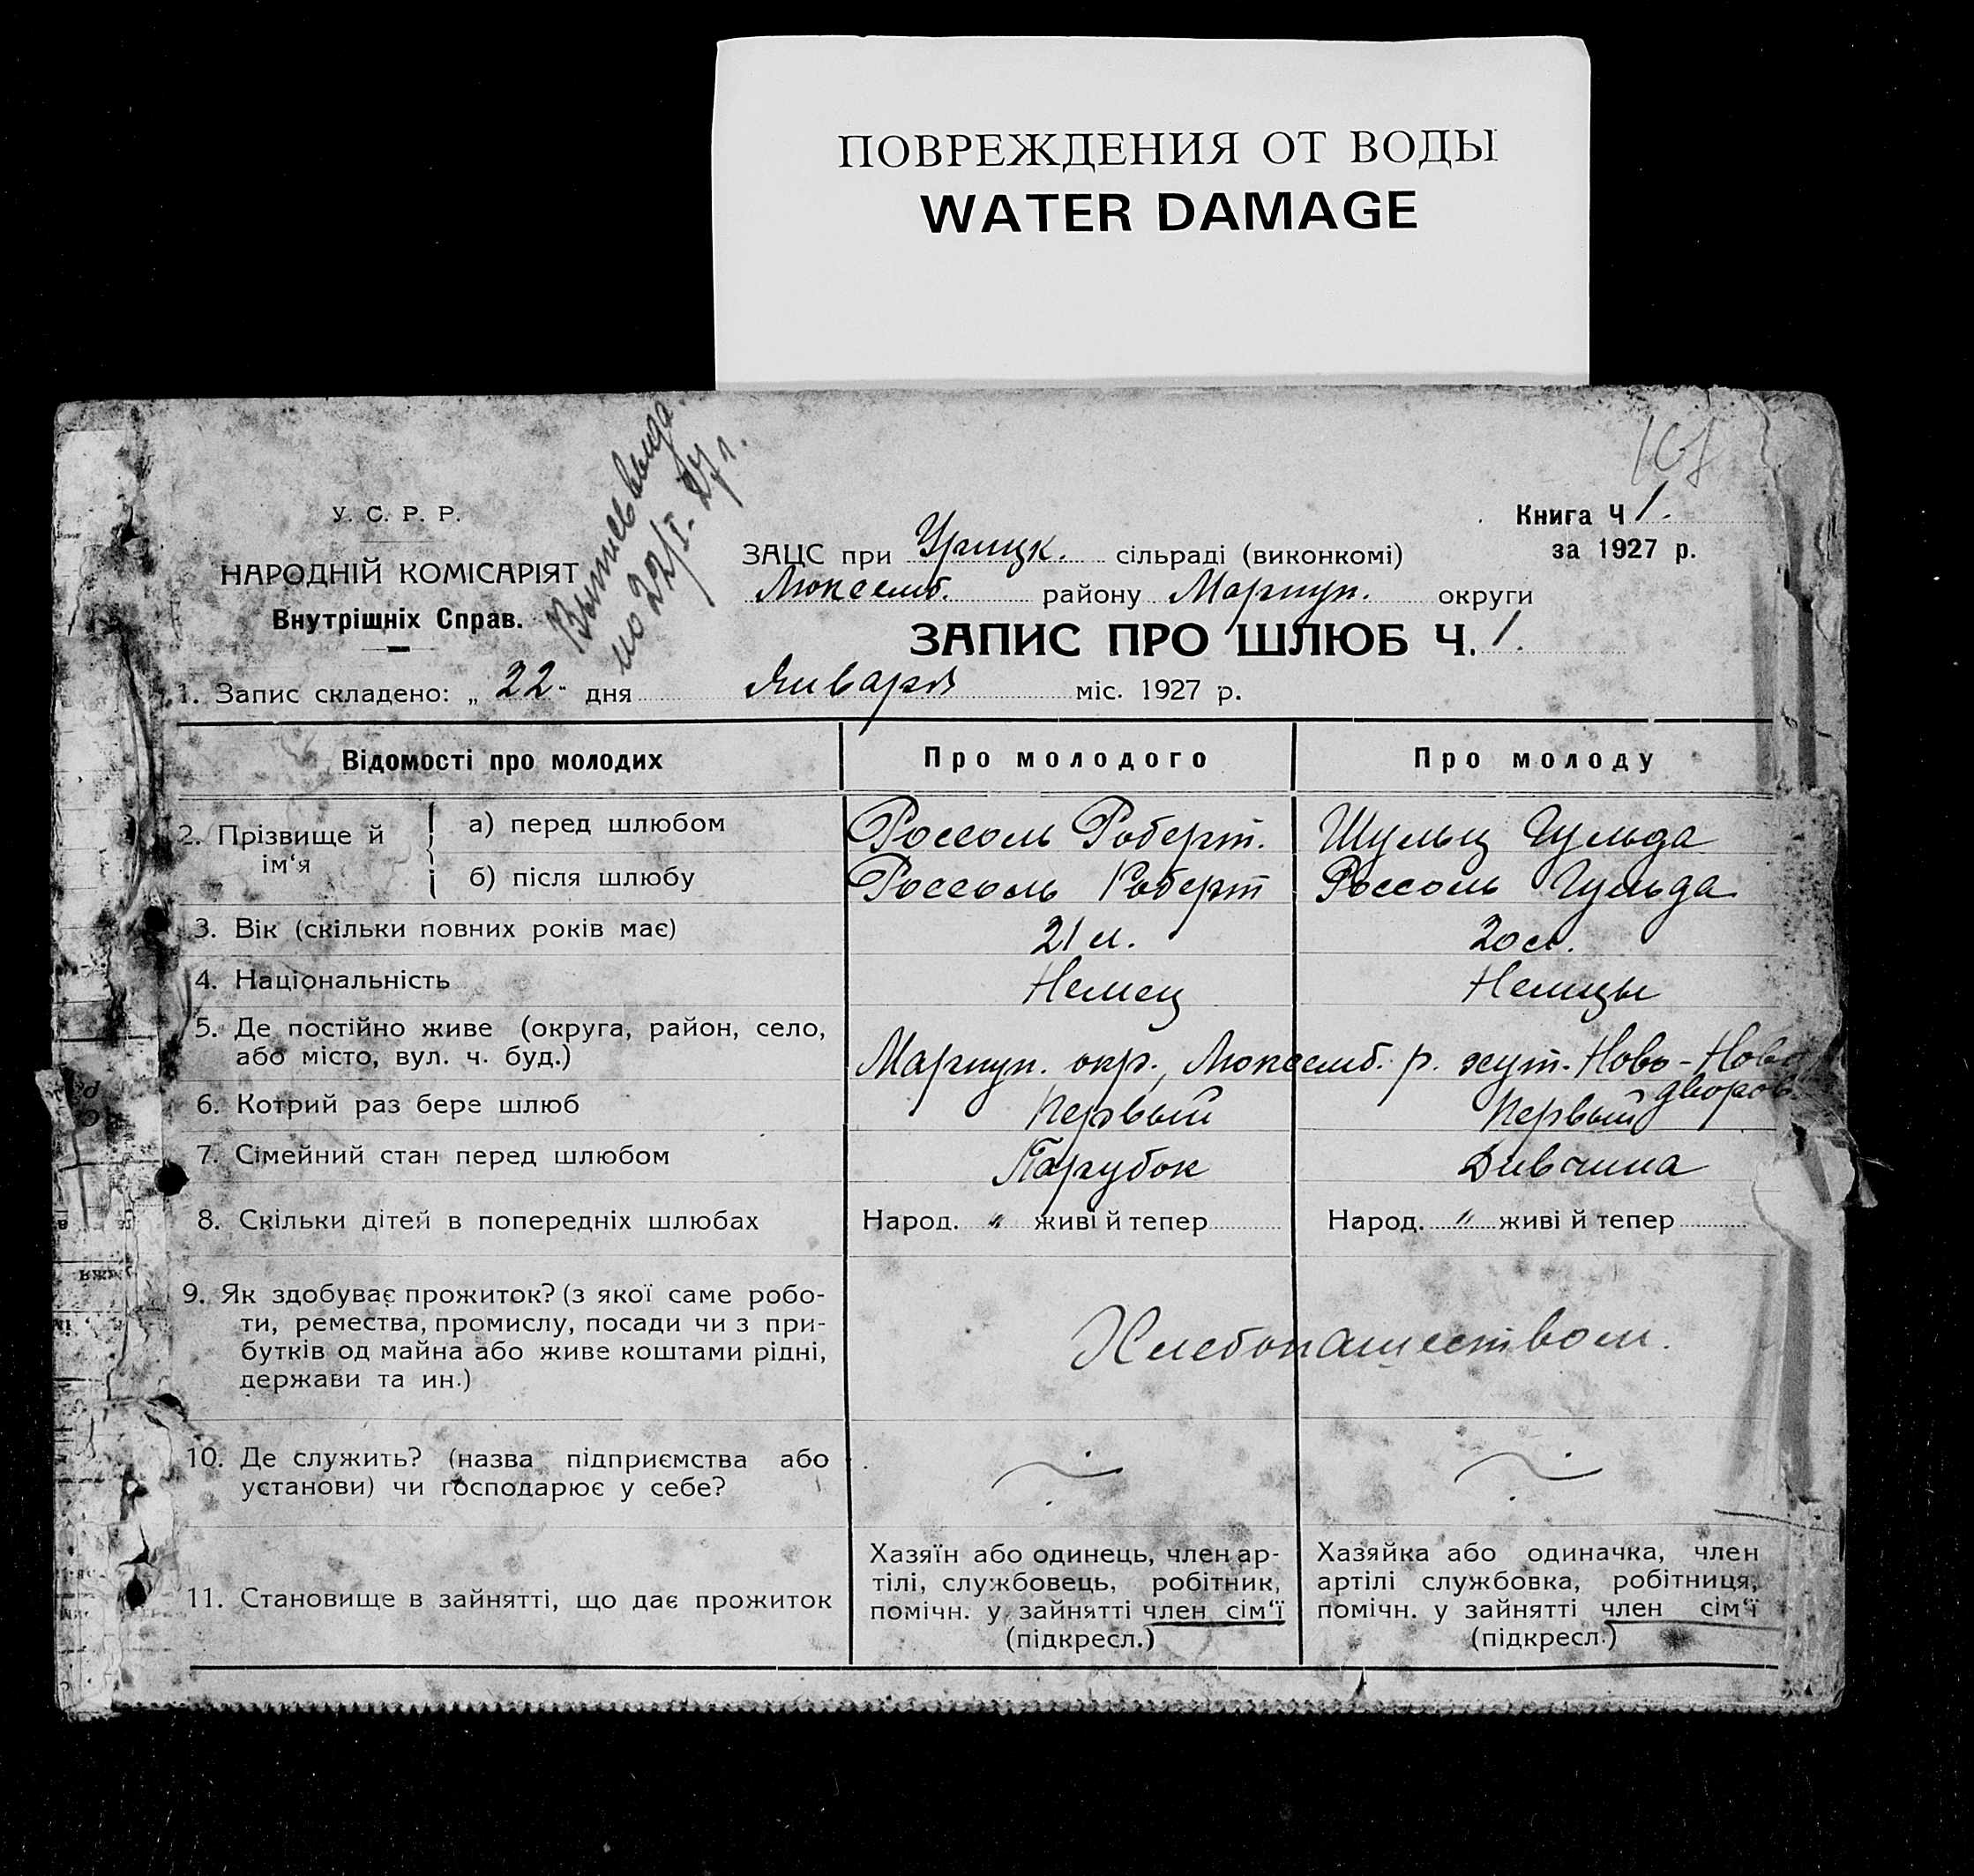 ПОВРЕЖДЕНИЯ ОТ ВОДЫ
WATER DAMAGE
У. С. Р. Р.
НАРОДНІЙ КОМІСАРІЯТ
Внутрішніх Справ.
по 22/I-27 г.
Книга Ч 1.
за 1927 р.
ЗАЦС при Урицк. сільраді (виконкомі)
Люксемб. району Мариуп. округи
ЗАПИС ПРО ШЛЮБ Ч. 1.
1. Запис складено: „ 22 " дня Января міс. 1927 р.
Відомості про молодих
Про молодого
Про молоду
2. Прізвище й ім‘я
а) перед шлюбом
Россоль Роберт.
Шульц Гульда
б) після шлюбу
Россоль Роберт
Россоль Гульда
3. Вік (скільки повних років має)
21 л.
20 л.
4. Національність
Немец
Немцы
5. Де постійно живе (округа, район, село,
або місто, вул. ч. буд.)
Мариуп. окр., Люксемб. р. хут. Ново-
дворов.
6. Котрий раз бере шлюб
Первый
Первый
7. Сімейний стан перед шлюбом
Парубок
Дивчина
8. Скільки дітей в попередніх шлюбах
Народ. " живі й тепер
Народ. " живі й тепер
9. Як здобуває прожиток? (з якої саме робо-
ти, ремества, промислу, посади чи з при-
бутків од майна або живе коштами рідні,
держави та ин.)
Хлебопашеством.
10. Де служить? (назва підприємства або
установи) чи господарює у себе?
11. Становище в зайнятті, що дає прожиток
Хазяїн або одинець, член ар-
тілі, службовець, робітник,
помічн. у зайнятті член сім‘ї
(підкресл.)
Хазяйка або одиначка, член
артілі службовка, робітниця,
помічн. у зайнятті член сім‘ї
(підкресл.)